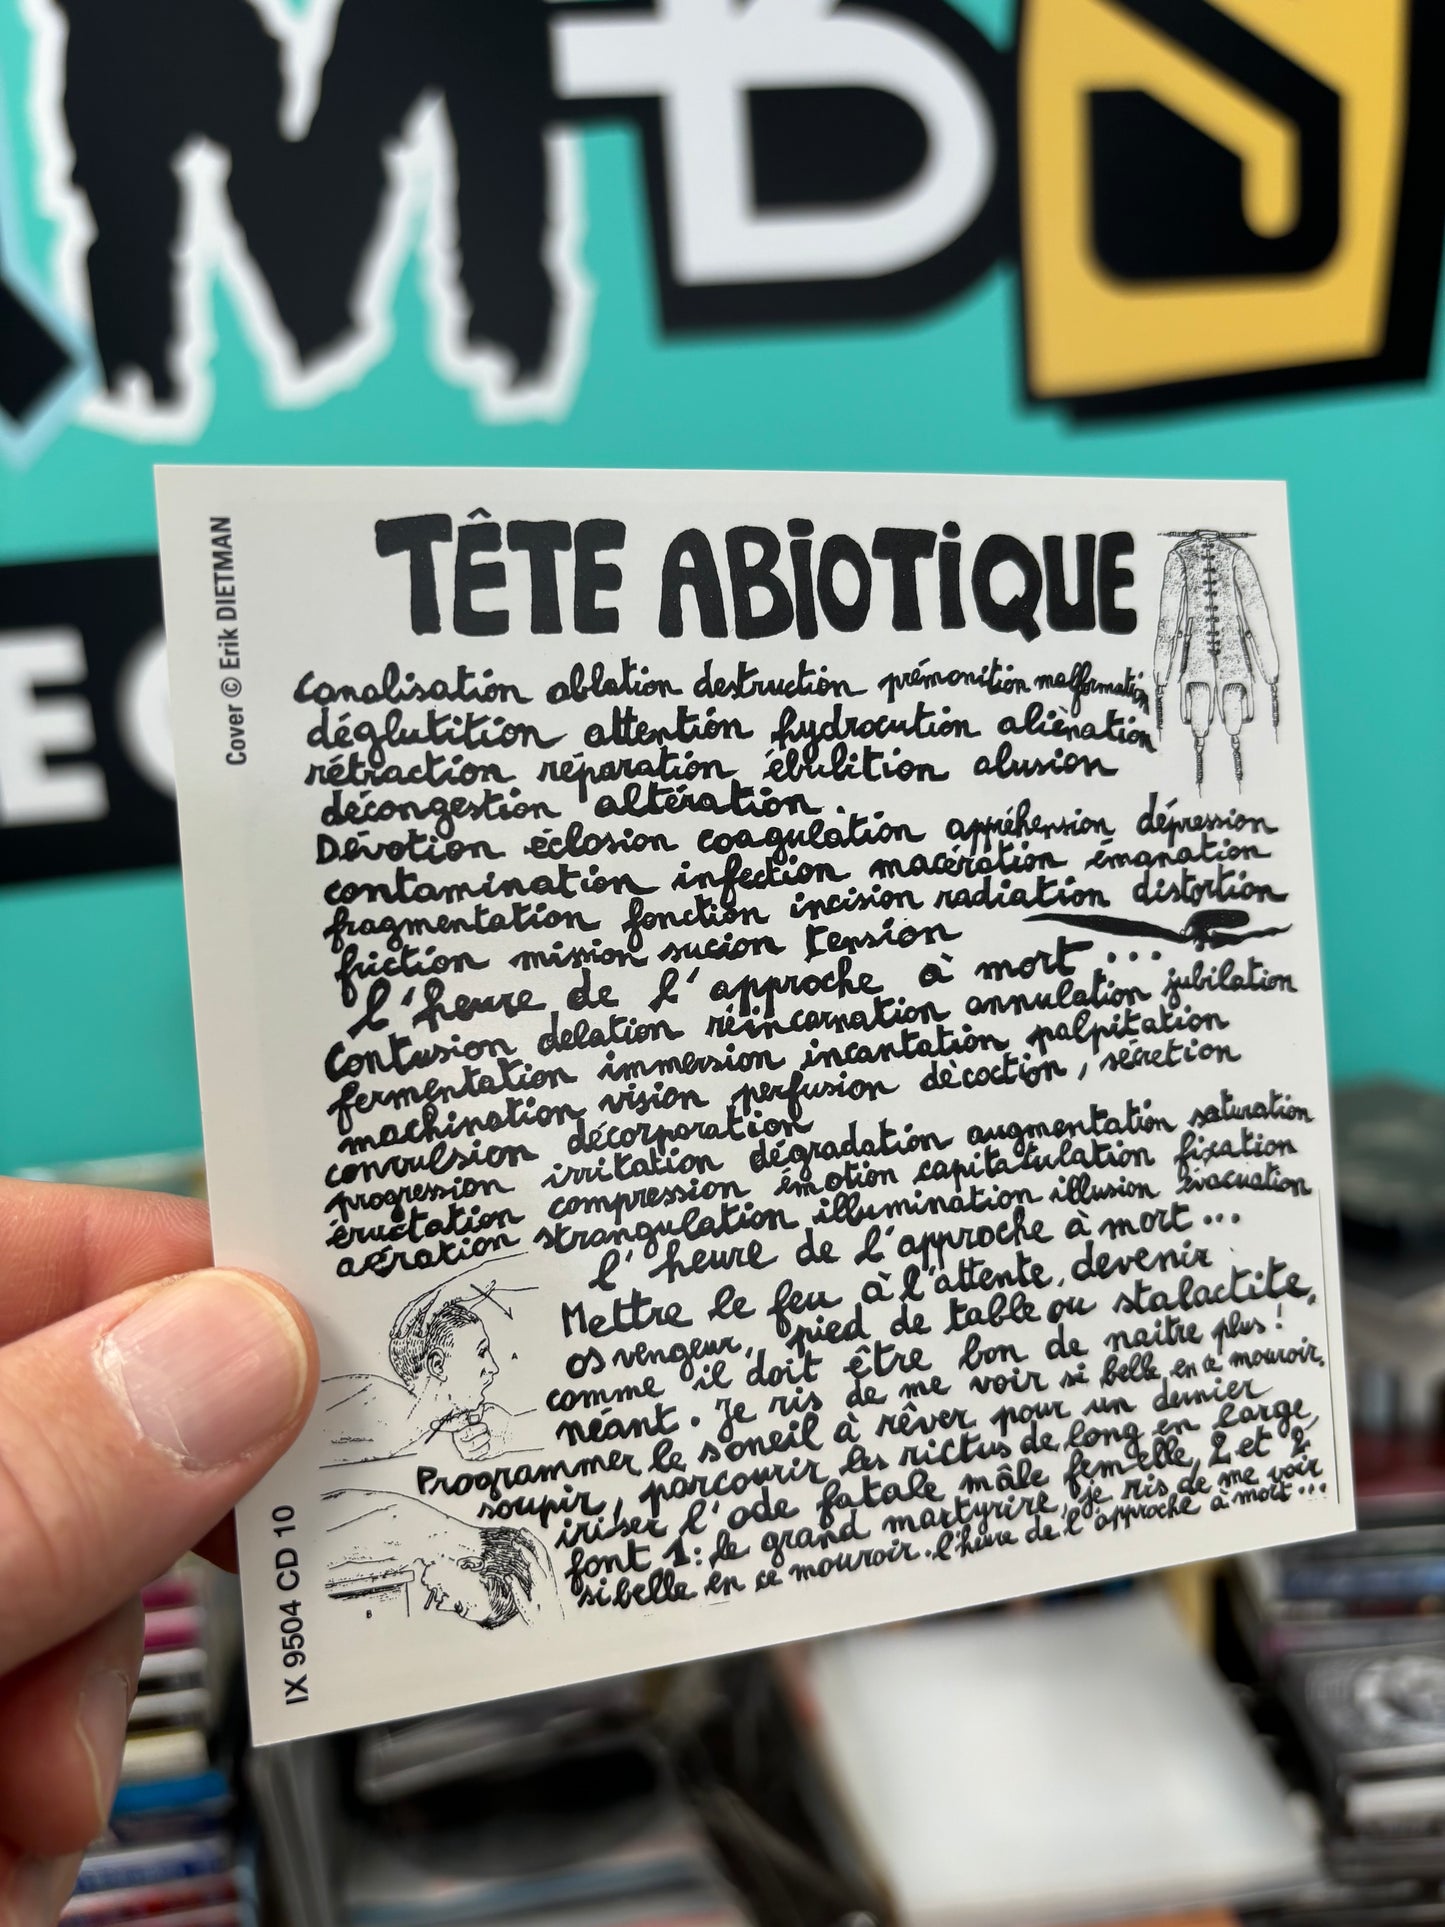 MBS
E
Cover © Erik DIETMAN
TÊTE ABIOTIQUE
Canalisation ablation destruction prémonition malformation
déglutition attention hydrocution aliènation
rétraction réparation ébulition alusion
décongestion altération.
Dévotion éclosion coagulation appréhension dépression
contamination infection macération émanation
fragmentation fonction incision radiation distortion
friction mission sucion tension
l'heure de l'approche à mort...
Contusion delation réincarnation annulation jubilation
fermentation immersion incantation palpitation
machination vision perfusion dècoction, sécretion
convulsion décorporation
progression irritation dégradation augmentation saturation
éructation compression émotion capitatulation fixation
aération strangulation illumination illusion évacuation
l'heure de l'approche à mort...
Mettre le feu à l'attente, devenir
os vengeur, pied de table ou stalactite,
comme il doit être bon de naitre plus!
néant. Je ris de me voir si belle en ce mouroir.
Programmer le soneil à rêver pour un dernier
soupir, parcourir les rictus de long en large,
iriser l'ode fatale mâle femelle, 2 et 2
font 1: le grand martyrire, je ris de me voir
si belle en ce mouroir. l'heure de l'approche à mort...
A
B
IX 9504 CD 10